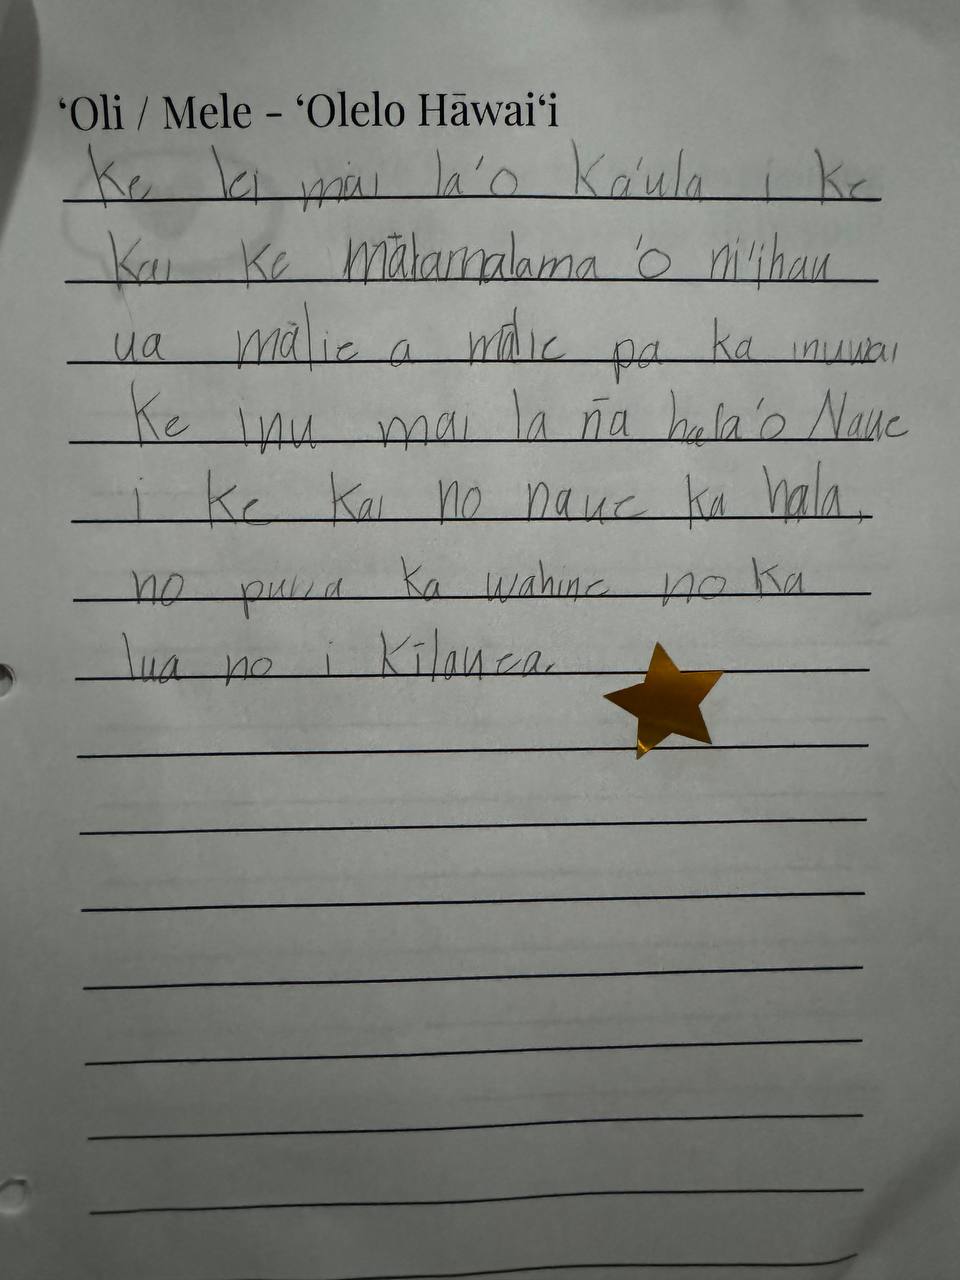 ʻOli / Mele - ʻOlelo Hāwaiʻi
Ke lei mai la'o Ka'ula i ke
Kai ke mālamalama 'o ni'ihau
ua mālie a mālie pa ka inuwai
Ke Inu mai la nā hala'o Naue
i Ke Kai no naue ka hala,
no puna ka wahine no Ka
lua no i Kīlauea.